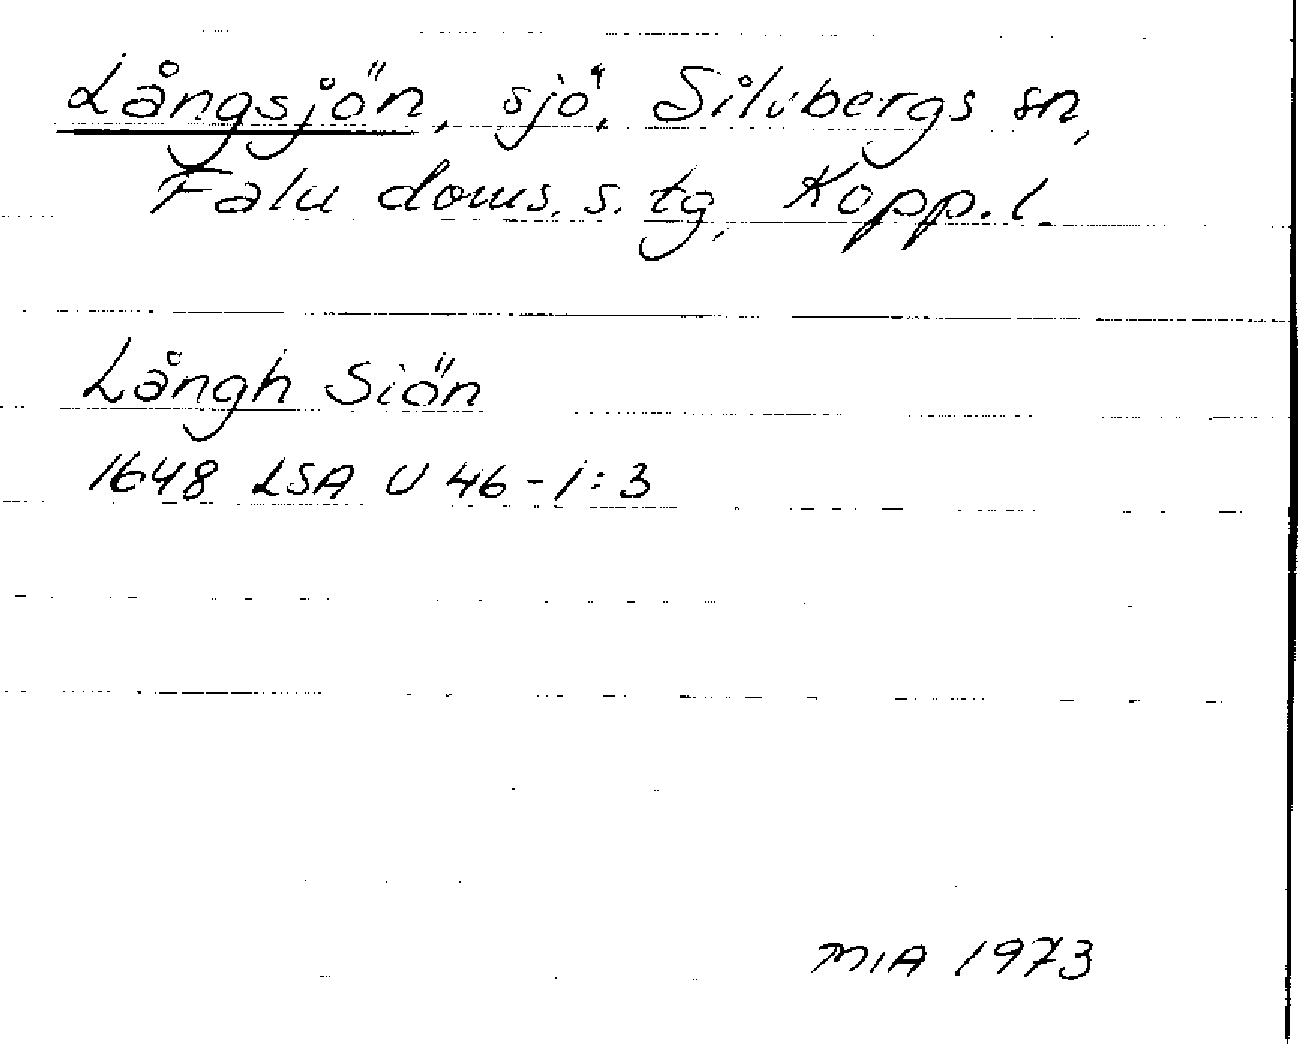 Långsjön, sjö, Silvbergs sn,
Falu doms. s. tg, Kopp. l.
Långh Siön
1648 LSA U 46-1:3
MIA 1973